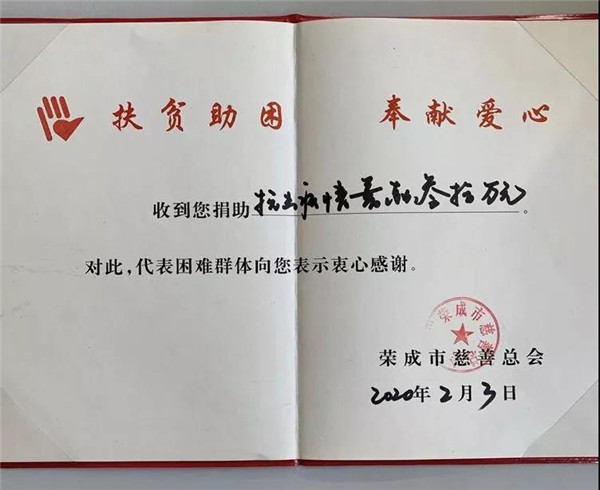 扶贫助困 奉献爱心
收到您捐助 抗击疫情善款叁拾万元。
对此,代表困难群体向您表示衷心感谢。
荣成市慈善
荣成市慈善总会
2020年2月3日